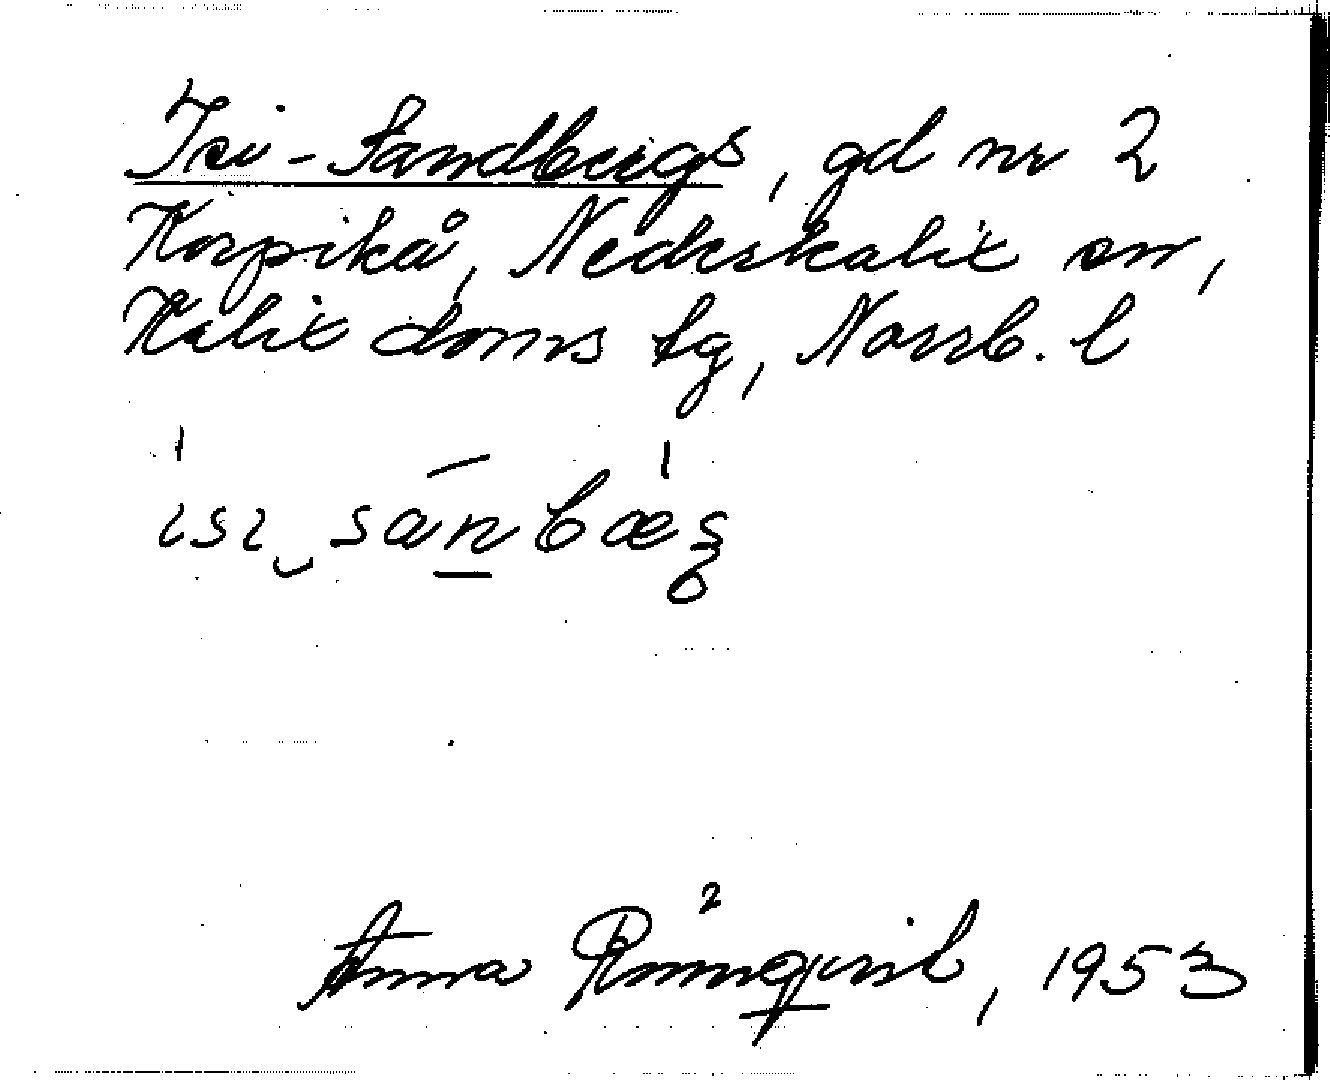 Isi-Sandbergs, gd nr 2
Korpikå, Nederkalix sn,
Kalix doms lg, Norrb. l
isi‿sanbæȿ
2
Anna Rönnqvist, 1953